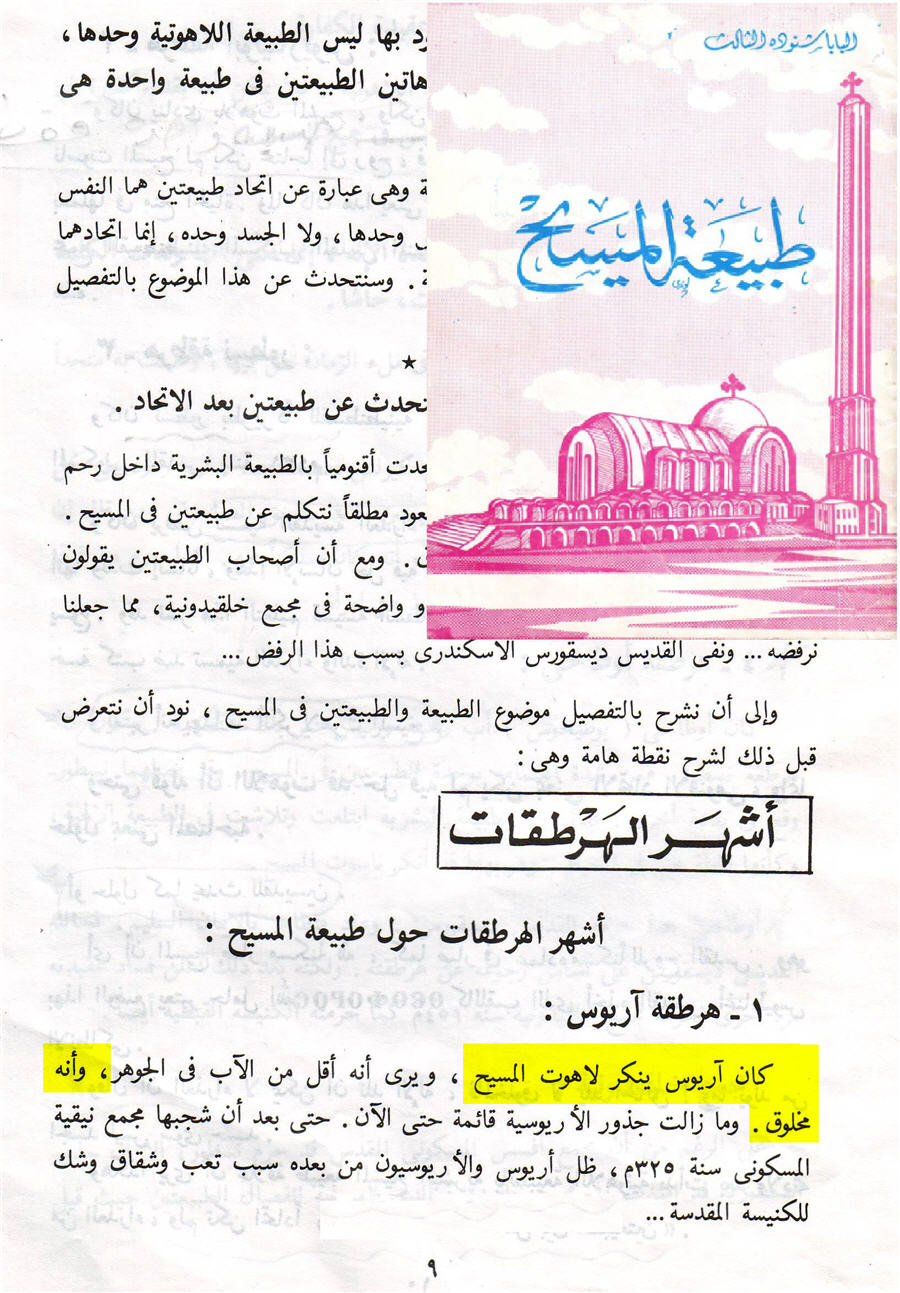 البابا شنوده الثالث
طبيعة المسيح
ود بها ليس الطبيعة اللاهوتية وحدها ،
هاتين الطبيعتين فى طبيعة واحدة هى
ة وهى عبارة عن اتحاد طبيعتين هما النفس
وحدها ، ولا الجسد وحده ، إنما اتحادهما
ة . وسنتحدث عن هذا الموضوع بالتفصيل
★
نتحدث عن طبيعتين بعد الاتحاد .
حدت أقنومياً بالطبيعة البشرية داخل رحم
عود مطلقاً نتكلم عن طبيعتين فى المسيح .
. ومع أن أصحاب الطبيعتين يقولون
و واضحة فى مجمع خلقيدونية ، مما جعلنا
نرفضه ... ونفى القديس ديسقورس الاسكندرى بسبب هذا الرفض ...
وإلى أن نشرح بالتفصيل موضوع الطبيعة والطبيعتين فى المسيح ، نود أن نتعرض
قبل ذلك لشرح نقطة هامة وهى :
أشهر الهرطقات
أشهر الهرطقات حول طبيعة المسيح :
١ ـ هرطقة آريوس :
كان آريوس ينكر لاهوت المسيح ، ويرى أنه أقل من الآب فى الجوهر ، وأنه
مخلوق . وما زالت جذور الأريوسية قائمة حتى الآن . حتى بعد أن شجبها مجمع نيقية
المسكونى سنة ٣٢٥م ، ظل أريوس والأريوسيون من بعده سبب تعب وشقاق وشك
للكنيسة المقدسة ...
٩